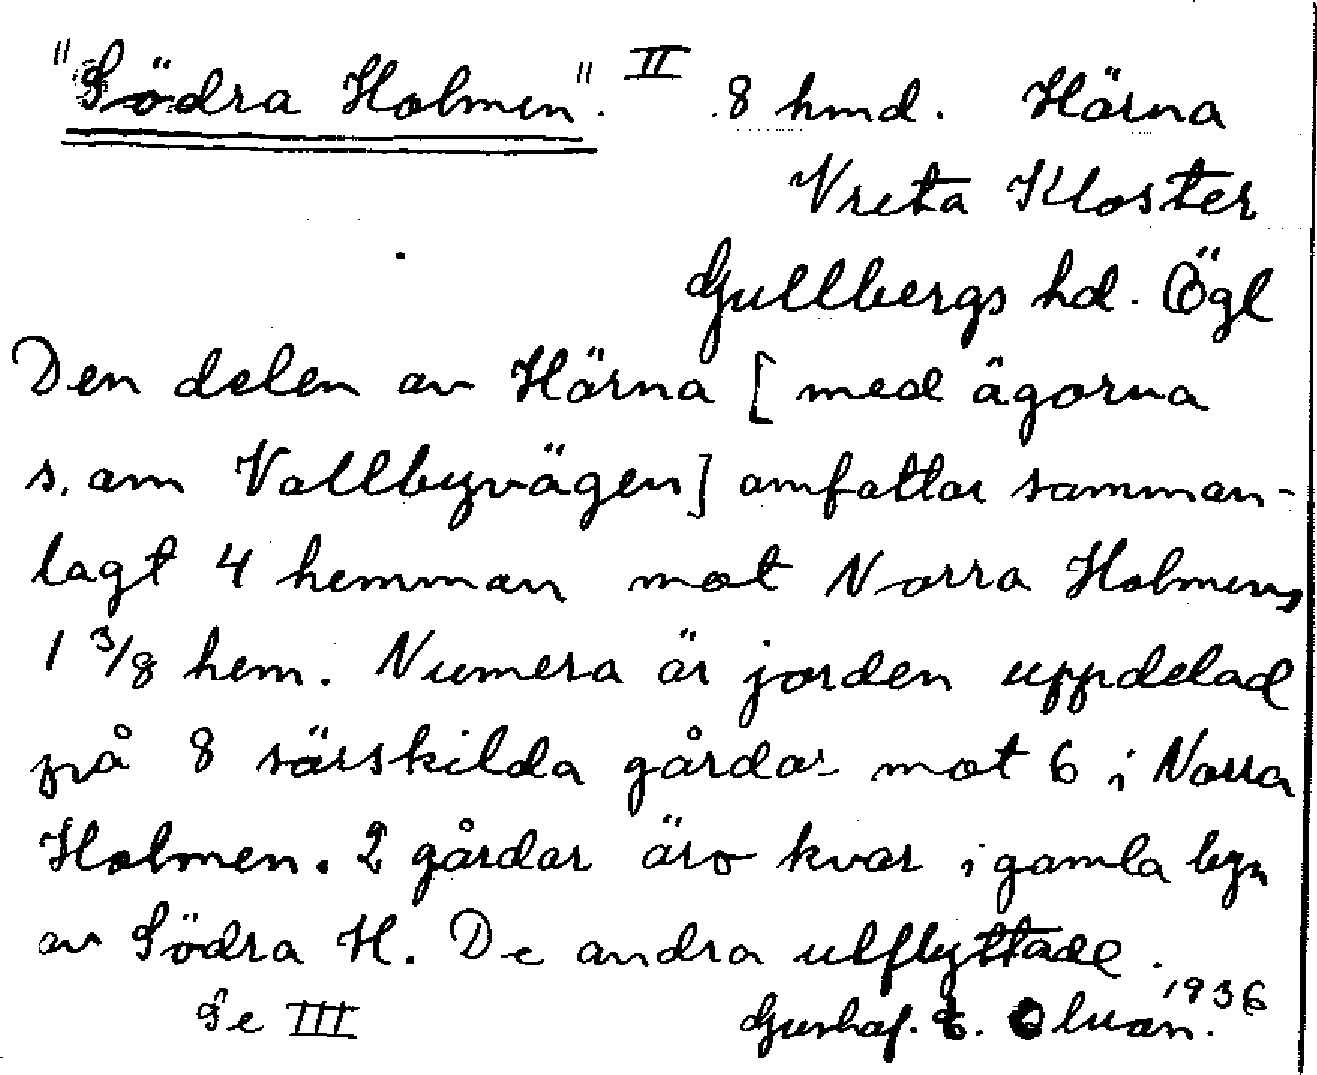 "Södra Holmen". II . 8 hmd. Härna
Vreta Kloster
Gullbergs hd. Ögl
Den delen av Härna [med ägorna
s. om Vallbyvägen] omfattar samman-
lagt 4 hemman mot Norra Holmens
1 3/8 hem. Numera är jorden uppdelad
på 8 särskilda gårdar mot 6 i Norra
Holmen. 2 gårdar äro kvar i gamla byn
av Södra H. De andra utflyttade.
Se III Gustaf. E. 1936